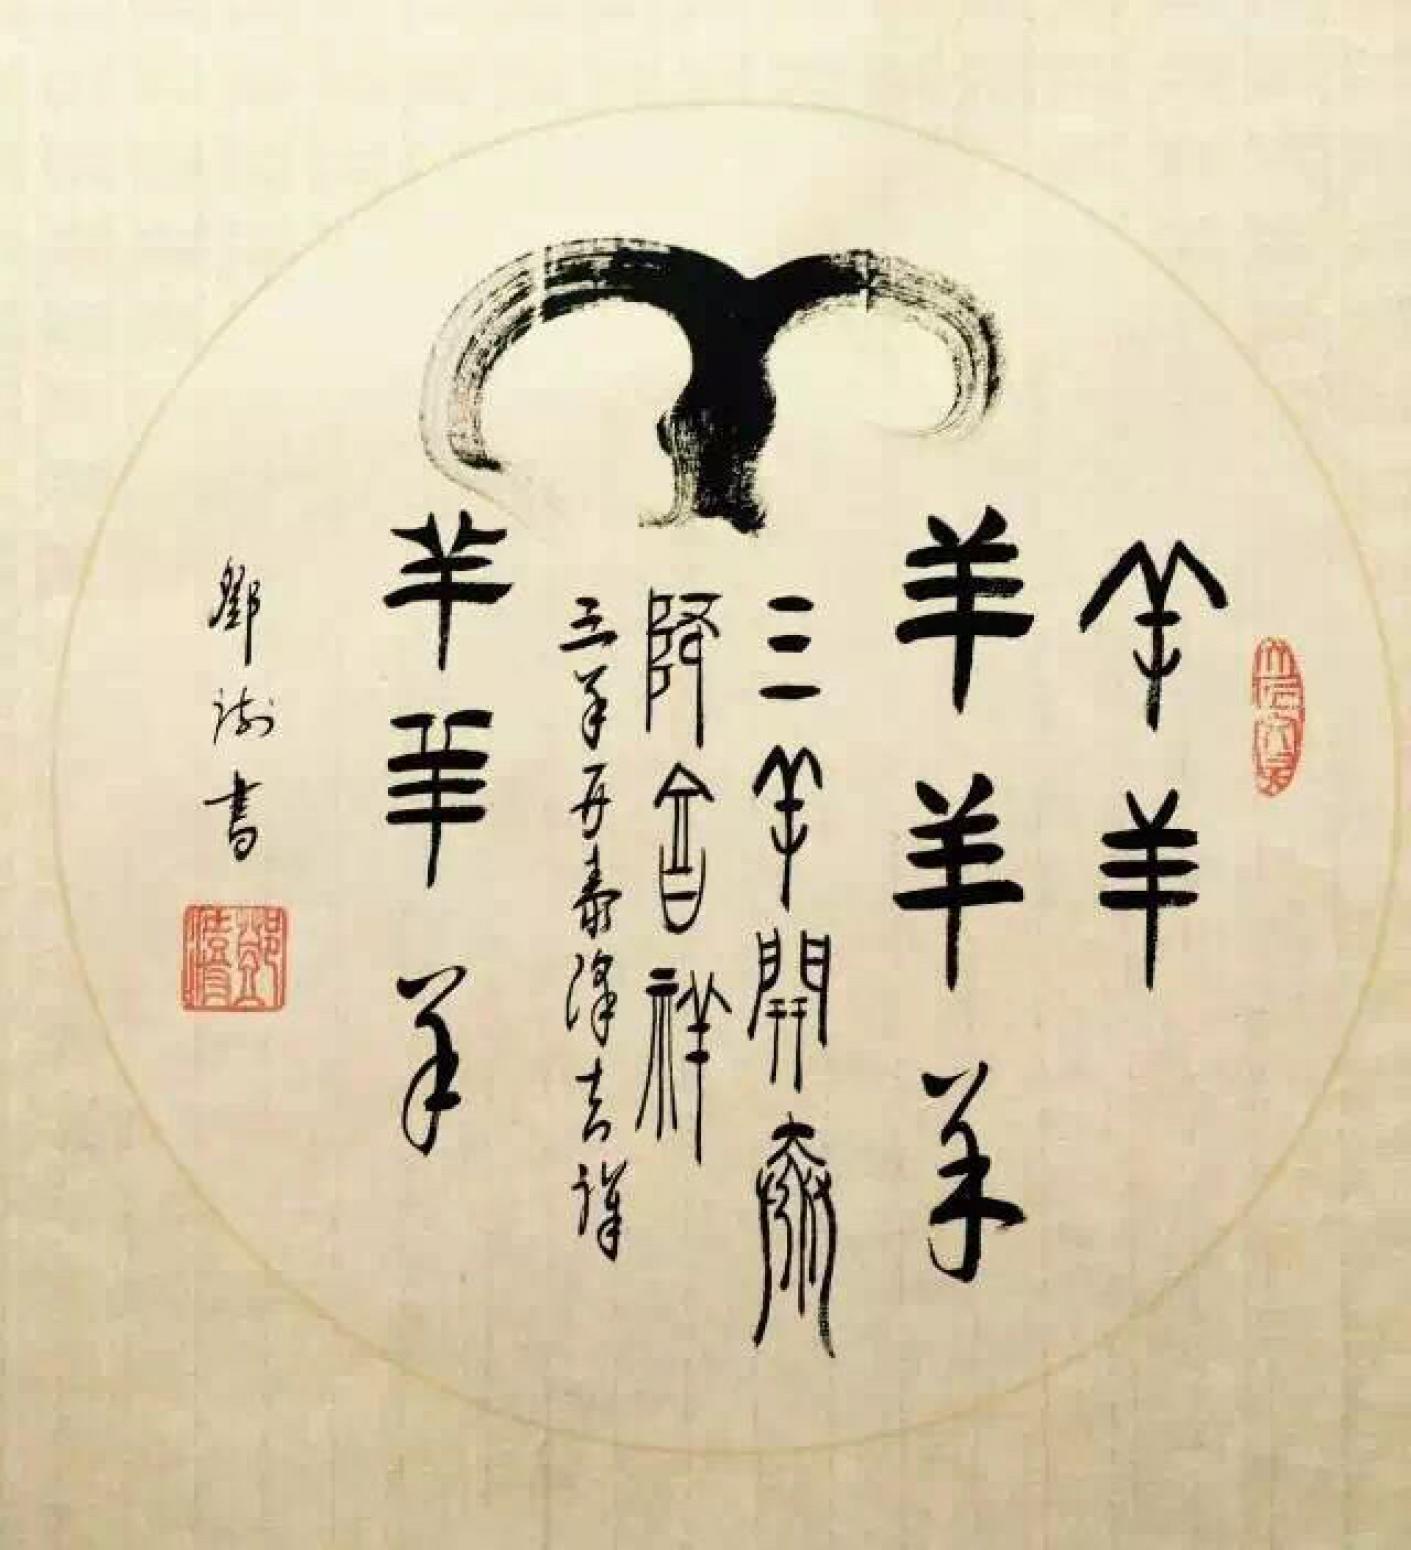 羊羊
羊羊羊
三羊開泰
降吉祥
三羊开泰降吉祥
羊羊羊
鄧書